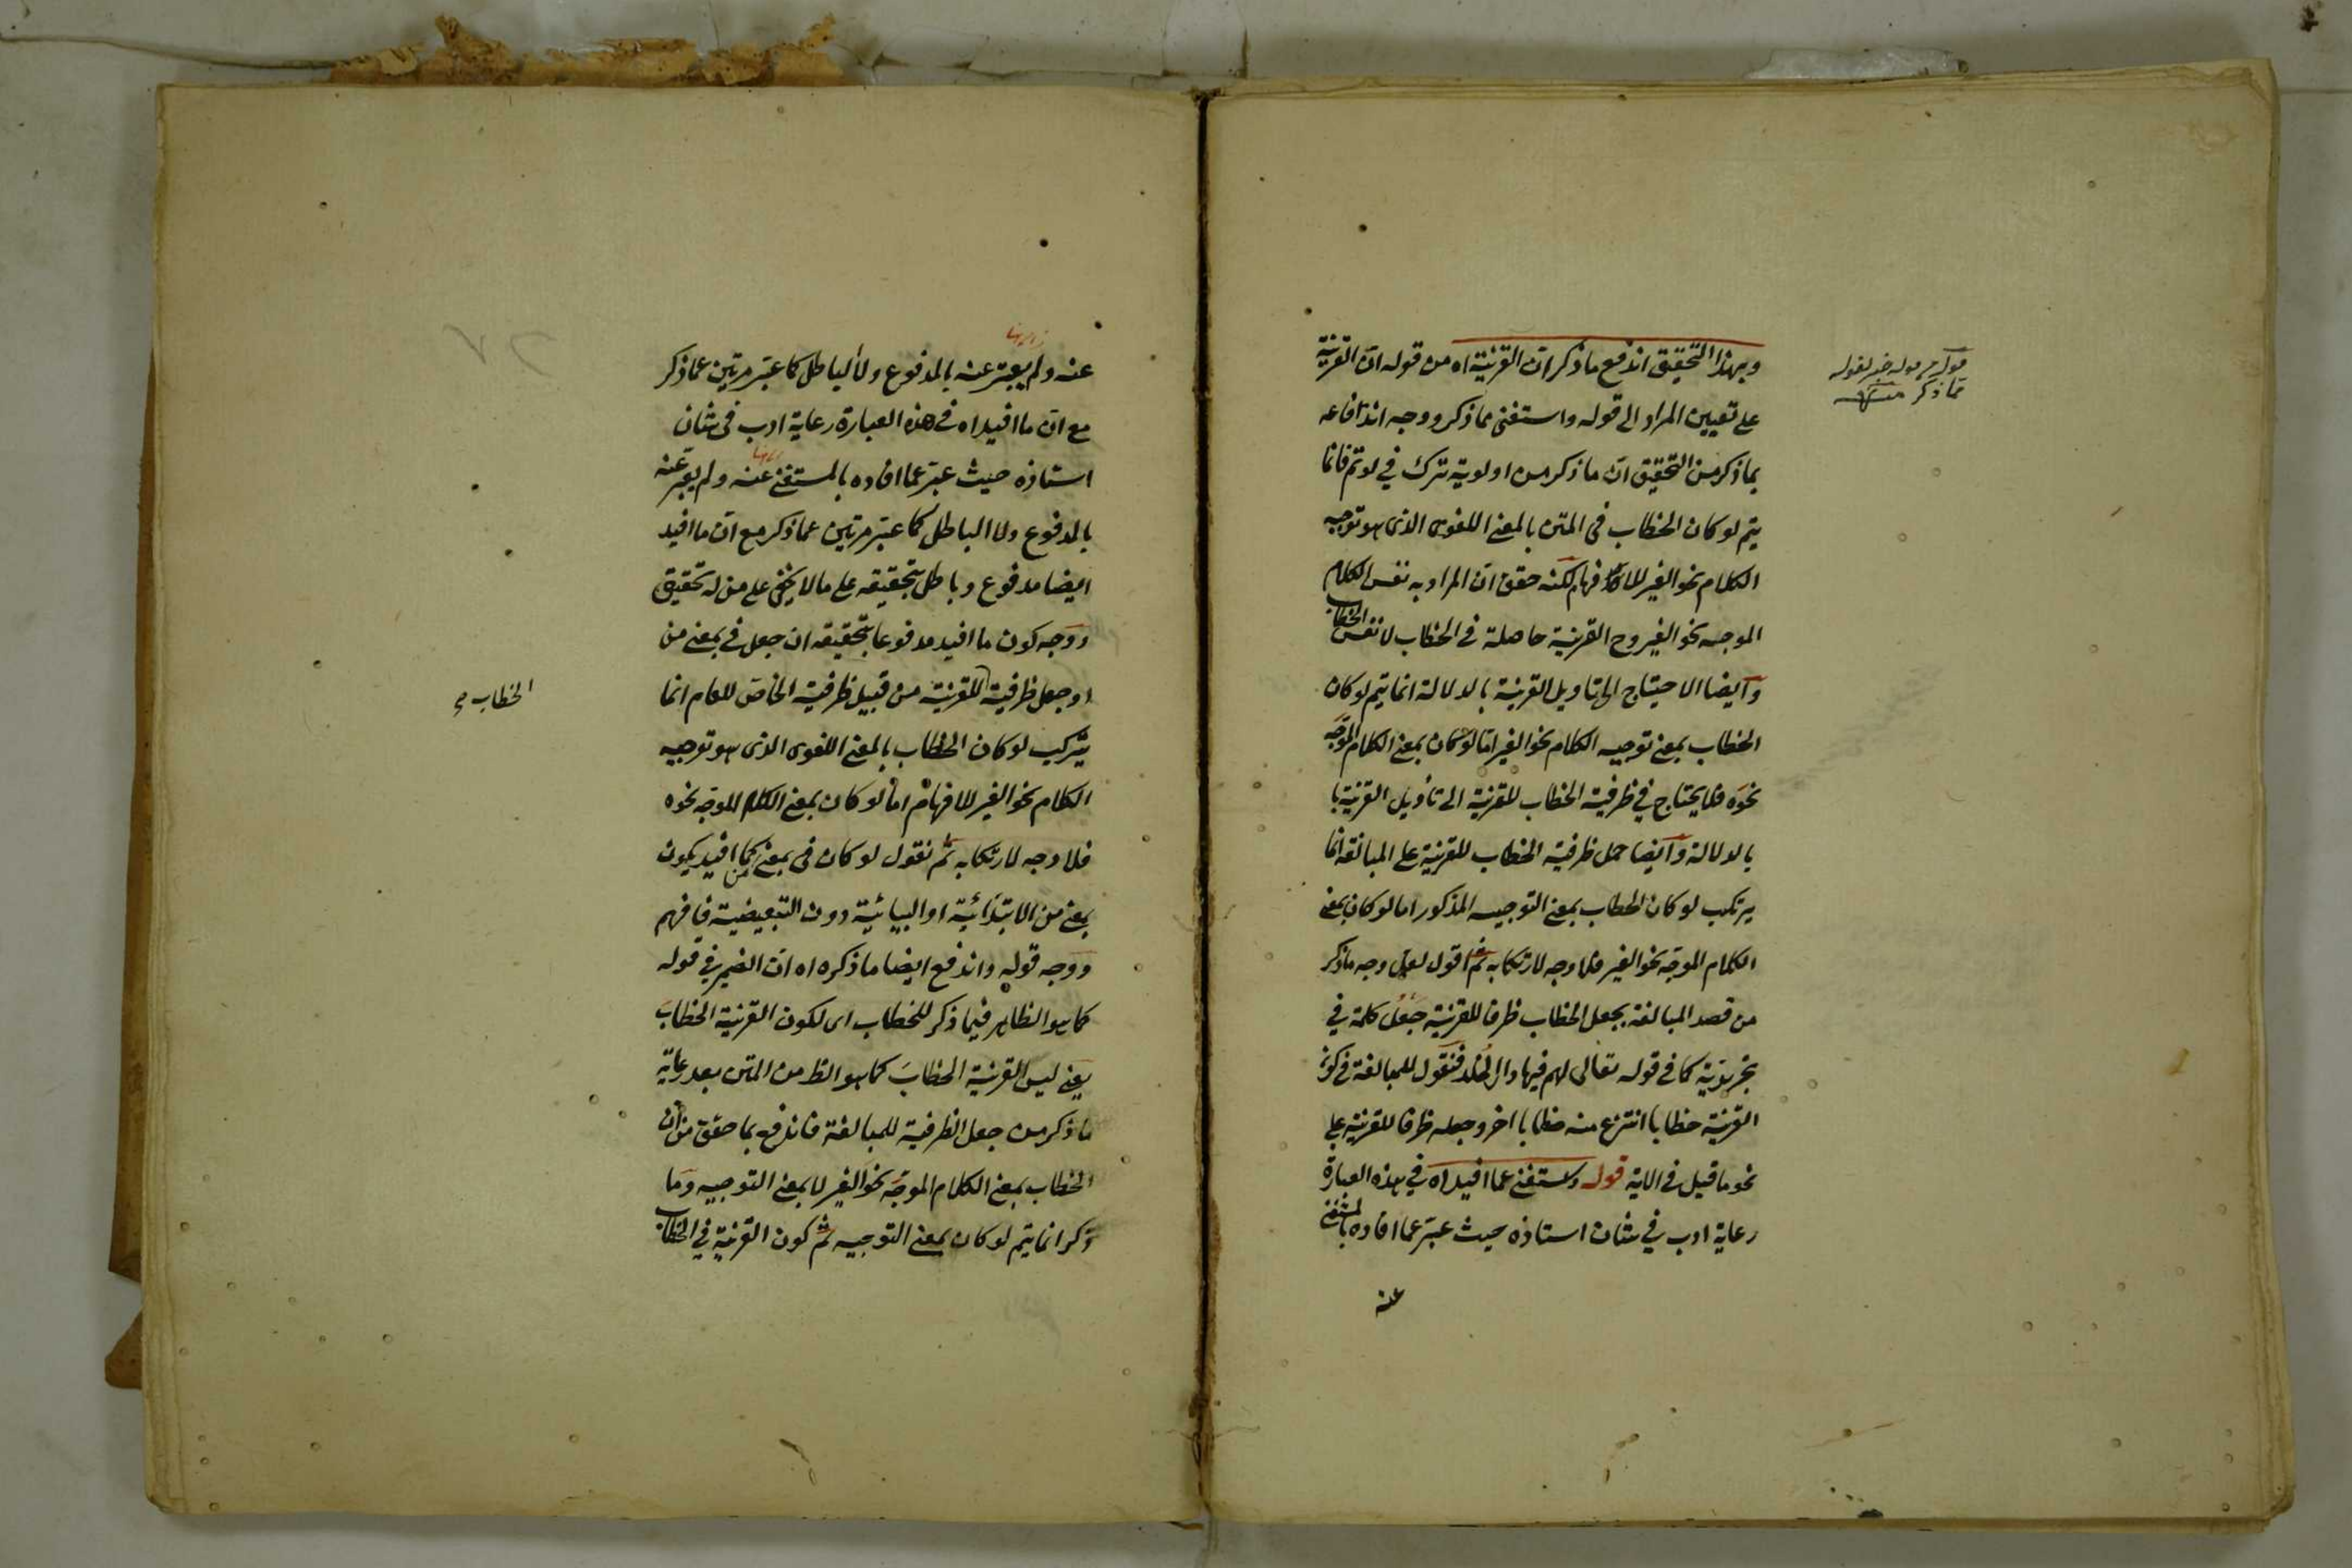 وبهذا التحقيق اندفع ما ذكر ان القرنية اه من قوله ان القرنية
على تعيين المراد الى قوله واستغنى عما ذكر ووجه اندفاعه
بما ذكر من التحقيق ان ما ذكر من اولوية ترك في لو تم فانما
يتم لو كان الخطاب فى المتن بالمعنى اللغوى الذى هو توجيه
الكلام نحو الغير للافهام لكنه حقق ان المراد به نفس الكلام
الموجه نحو الغير وح القرنية حاصلة فى الخطاب لا نفس الخطاب
وايضا الاحتياج الى تاويل القرنية بالدلالة انما يتم لو كان
الخطاب بمعنى توجيه الكلام نحو الغير اما لو كان بمعنى الكلام الموجّه
نحوه فلا يحتاج في ظرفية الخطاب للقرنية الى تأويل القرنية با
بالدلالة وايضا حمل ظرفية الخطاب للقرنية على المبالغة انما
يرتكب لو كان الخطاب بمعنى التوجيه المذكور اما لو كان بمعنى
الكلام الموجّه نحو الغير فلا وجه لارتكابه ثم اقول لعل وجه ما ذكر
من قصد المبالغة بجعل الخطاب ظرفا للقرنية جَعْلُ كلمة في
تجريدية كما فى قوله تعالى لهم فيها دار الخُلد فنقول للمبالغة فى كون
القرنية خطابا انتزع منه خطابا اخر وجعله ظرفا للقرنية على
نحو ما قيل فى الاية قوله واستغنى عما افيد اه في هذه العبارة
رعاية ادب في شان استاذه حيث عبّر عما افاده بالمستغنى
عنه
قما ذكر منه
عنه ولم يعبّر عنه بالمدفوع ولا الباطل كما عبّر مرتين عما ذكر
مع ان ما افيد اه فى هذه العبارة رعاية ادب فى شان
استاذه حيث عبّر عما افاده بالمستغنى عنه ولم يعبّر عنه
بالمدفوع ولا الباطل كما عبّر مرتين عما ذكر مع انّ ما افيد
ايضا مدفوع وباطل بتحقيقه على ما لا يخفى على من له تحقيق
ووجه كون ما افيد مدفوعا بتحقيقه ان جعل فى بمعنى من
او جعل ظرفية للقرنية من قبيل ظرفية الخاص للعام انما
الخطاب
يرتكب لو كان الخطاب بالمعنى اللغوى الذى هو توجيه
الكلام نحو الغير للافهام اما لو كان بمعنى الكلام الموجّه نحوه
فلا وجه لارتكابه ثم نقول لو كان فى بمعنى من كما افيد يكون
بمعنى من الابتدائية او البيائية دون التبعيضية فافهم
ووجه قوله واندفع ايضا ما ذكره اه ان الضمير في قوله
كما هو الظاهر فيما ذكر للخطاب اى لكون القرنية الخطابَ
يعنى ليس القرنية الخطابَ كما هو الظ من المتن بعد رعاية
ما ذكر من جعل الظرفية للمبالغة فاندفع بما حقق من ان
الخطاب بمعنى الكلام الموجّه نحو الغير لا بمعنى التوجيه وما
ذكر انما يتم لو كان بمعنى التوجيه ثم كون القرنية في الخطاب